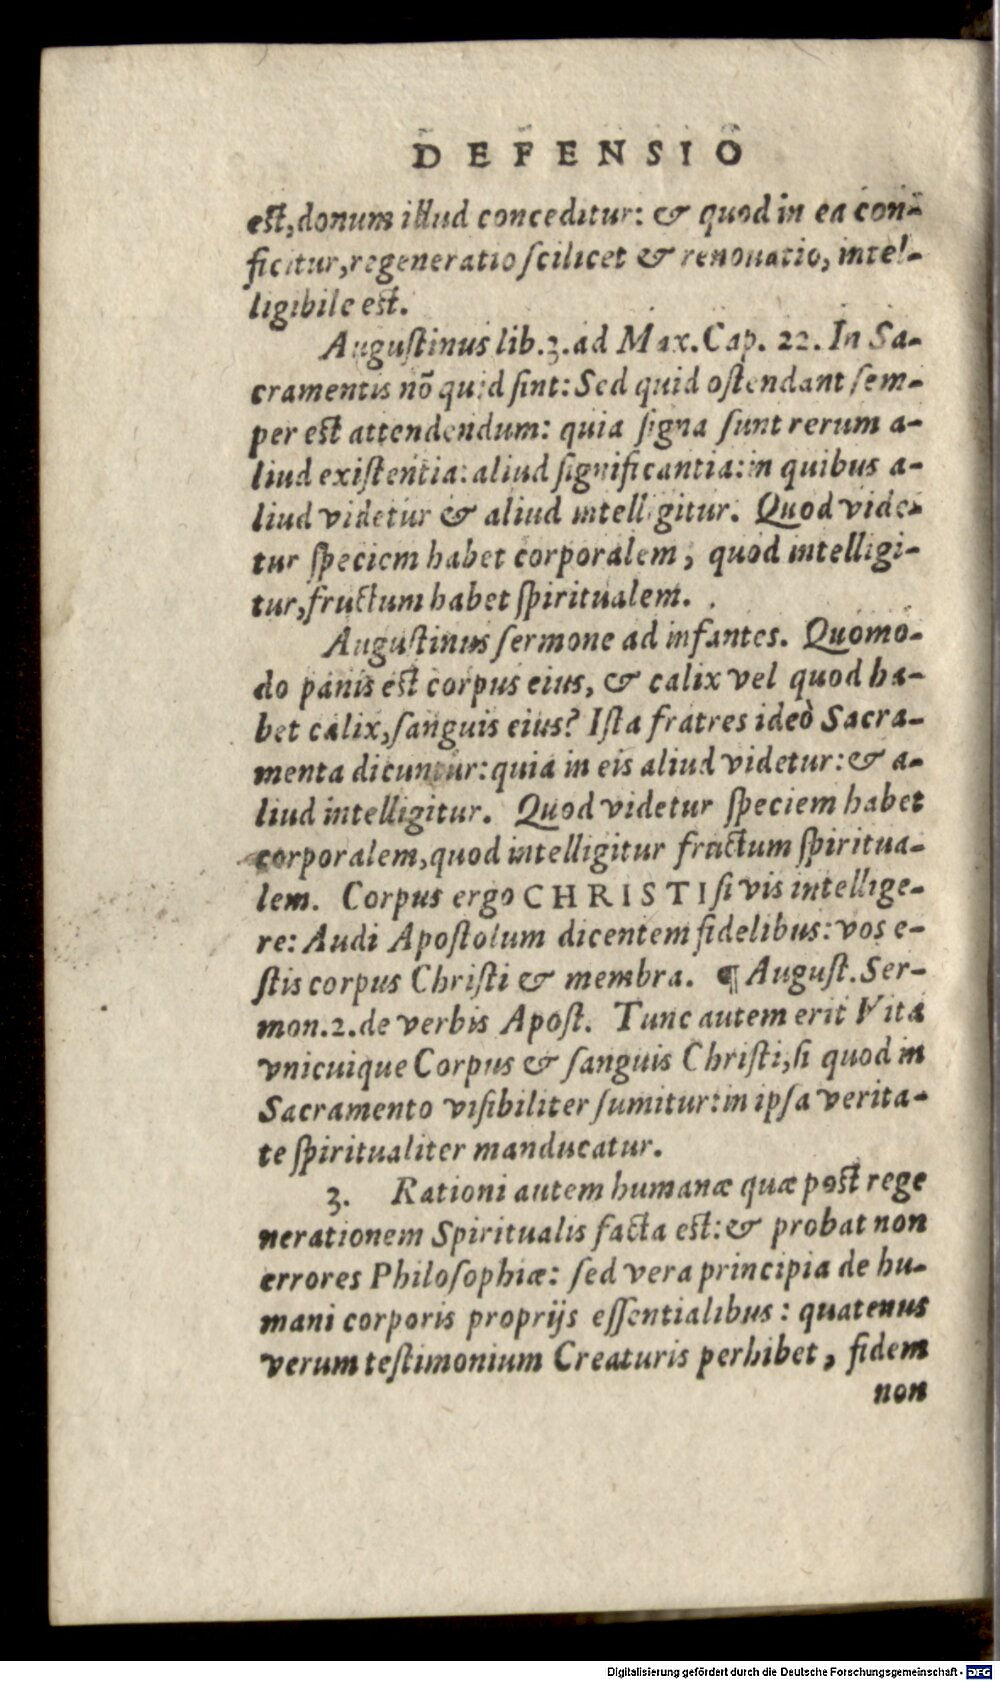 DEFENSIO
est, donum illud conceditur: & quod in ea con-
ficitur, regeneratio scilicet & renouatio, intel-
ligibile est.
Augustinus lib.3.ad Max.Cap. 22. In Sa-
cramentis nō quid sint: Sed quid ostendant sem-
per est attendendum: quia signa sunt rerum a-
liud existentia: aliud significantia: in quibus a-
liud videtur & aliud intelligitur. Quod vide-
tur speciem habet corporalem, quod intelligi-
tur, fructum habet spiritualem.
Augustinus sermone ad infantes. Quomo-
do panis est corpus eius, & calix vel quod ha-
bet calix, sanguis eius? Ista fratres ideò Sacra-
menta dicuntur: quia in eis aliud videtur: & a-
liud intelligitur. Quod videtur speciem habet
corporalem, quod intelligitur fructum spiritua-
lem. Corpus ergo CHRISTI si vis intellige-
re: Audi Apostolum dicentem fidelibus: vos e-
stis corpus Christi & membra. ¶ August. Ser-
mon.2.de verbis Apost. Tunc autem erit Vita
vnicuique Corpus & sanguis Christi, si quod in
Sacramento visibiliter sumitur: in ipsa verita-
te spiritualiter manducatur.
3. Rationi autem humanæ quæ post rege
nerationem Spiritualis facta est: & probat non
errores Philosophiæ: sed vera principia de hu-
mani corporis proprijs essentialibus: quatenus
verum testimonium Creaturis perhibet, fidem
non
Digitalisierung gefördert durch die Deutsche Forschungsgemeinschaft - DFG